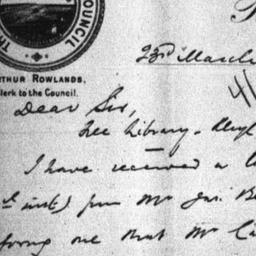 COUNCIL
TH
RTHUR ROWLANDS,
lerk to the Council.
23rd March
41
Dear Sir,
Free Library
I have received a
inst) from Mr Jas. B
forming me that Mr Ca